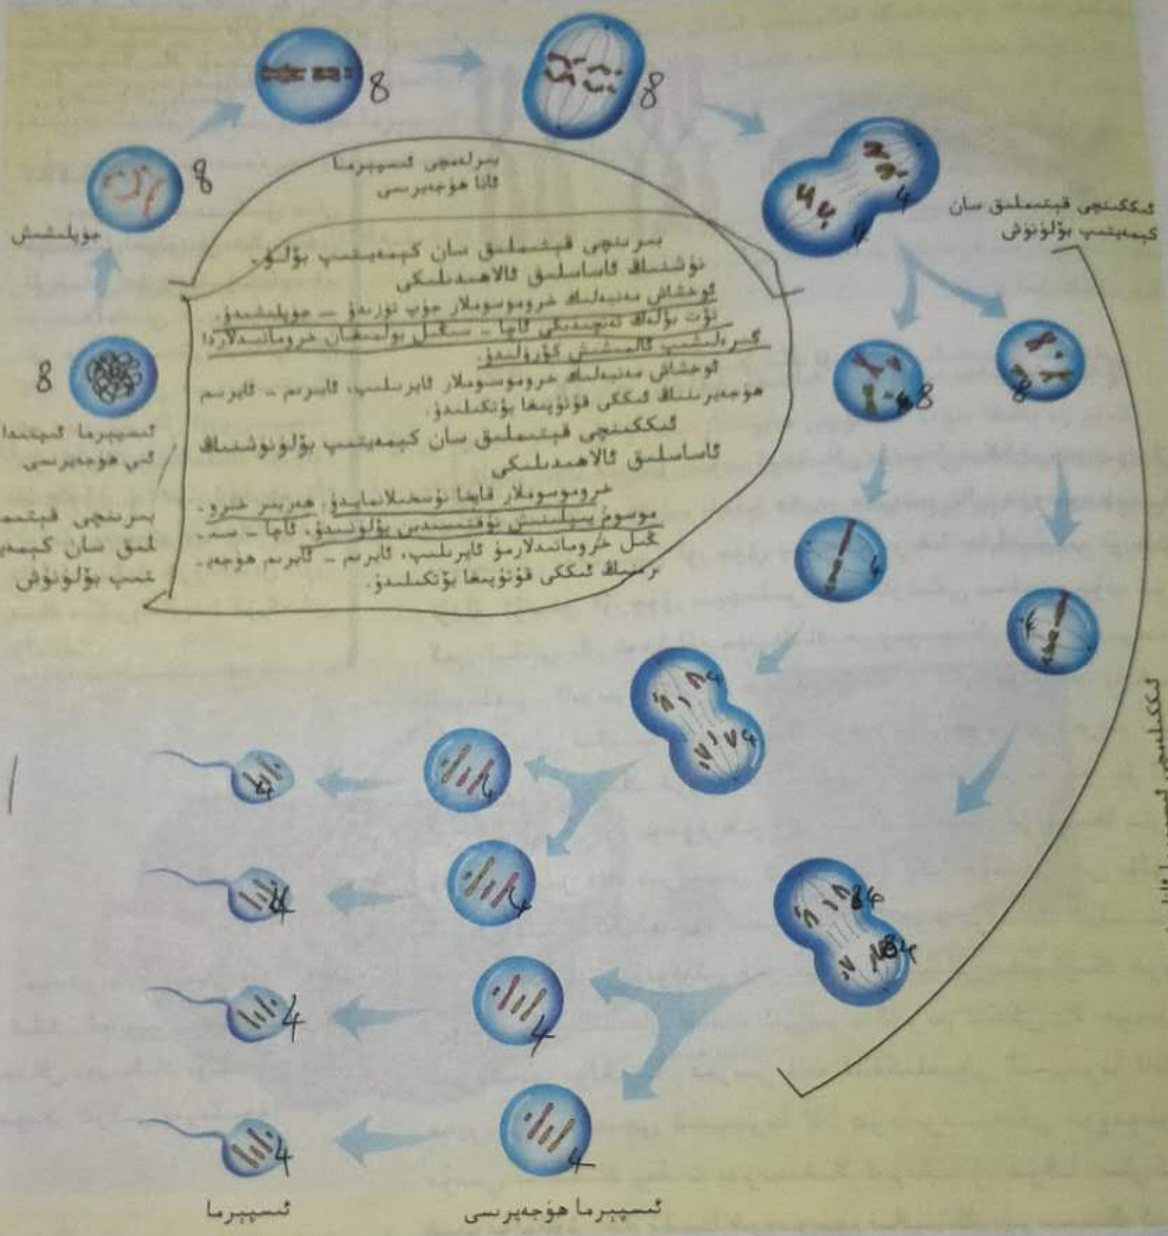 8
8
بىرلەمچى ئىسپىرما
ئانا ھۈجەيرىسى
8
4
4
ئىككىنچى قېتىملىق سان
كېمەيتىپ بۆلۈنۈش
جۈپلىشىش
بىرىنچى قېتىملىق سان كېمەيتىپ بۆلۈ-
نۈشنىڭ ئاساسلىق ئالاھىدىلىكى
ئوخشاش مەنبەلىك خروموسوملار جۈپ تۈزىدۇ — جۈپلىشىدۇ.
تۆت بۆلەك تەنچىدىكى ئاچا - سىڭىل بولمىغان خروماتىدلاردا
گىرەلىشىپ ئالمىشىش كۆرۈلىدۇ.
ئوخشاش مەنبەلىك خروموسوملار ئايرىلىپ، ئايرىم - ئايرىم
ھۈجەيرىنىڭ ئىككى قۇتۇپىغا يۆتكىلىدۇ.
ئىككىنچى قېتىملىق سان كېمەيتىپ بۆلۈنۈشنىڭ
ئاساسلىق ئالاھىدىلىكى
خروموسوملار قايتا نۇسخىلانمايدۇ. ھەربىر خرو-
موسوم يىپلىنىش نۇقتىسىدىن بۆلۈنىدۇ، ئاچا - سى-
ڭىل خروماتىدلارمۇ ئايرىلىپ، ئايرىم - ئايرىم ھۈجەي-
رىنىڭ ئىككى قۇتۇپىغا يۆتكىلىدۇ.
8
ئىسپىرما ئىپتىدا
ئىي ھۈجەيرىسى
بىرىنچى قېتىم
لىق سان كېمەي
تىپ بۆلۈنۈش
8
8
4
4
4
4
4
4
4
4
84
84
4
4
4
4
ئىسپىرما ھۈجەيرىسى
ئىسپىرما